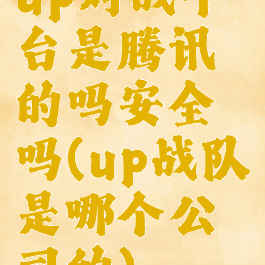 up对战平
台是腾讯
的吗安全
吗(up战队
是哪个公
司的)